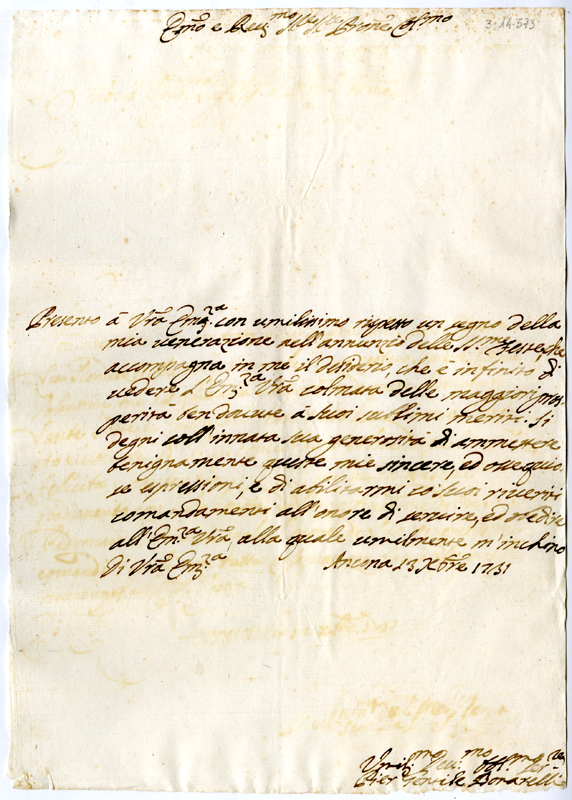 3-14-573
Em̃o e Reu.mo Sig.re Sig.re Prõne Col.mo
Presento à Vrã Emz.a con umilissimo rispetto un segno della
mia venerazione nell'annunzio delle S.me Feste, che
accompagna in me il desiderio, che è infinito di
vedere l'Emz.a Vrã colmata delle maggiori pros-
perità ben dovute a suoi sublimi meriti. Si
degni coll'innata sua generosità di ammettere
benignamente queste mie sincere, ed ossequio-
se espressioni, e di abilitarmi co' suoi riveriti
comandamenti all'onore di servire, ed obedire
all'Emz.a Vrã alla quale umilmente m'inchino
Di Vrã Emz.a Ancona 13 Xbre 1731
Umil.mo Deu.mo Obl.mo Ser.re
Pier Gentile Bonarelli